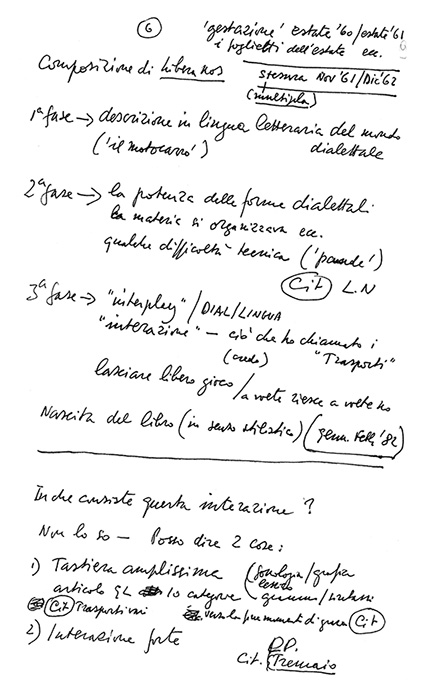 6
'gestazione' estate '60/estate '61
i foglietti dell'estate ecc.
Composizione di Libera nos
stesura Nov '61/Dic '62
(multipla)
1ª fase → descrizione in lingua letteraria del mondo
('il motocarro') dialettale
2ª fase → la potenza delle forme dialettali
la materia si organizzava ecc.
qualche difficoltà tecnica ('parade')
Cit L.N
3ª fase → "interplay" / DIAL/LINGUA
"interazione" — ciò che ho chiamato i
(credo) "Trasporti"
lasciare libero gioco / a volte riesce a volte no
Nascita del libro (in senso stilistico) (genn. Febb '82)
In che consiste questa interazione?
Non lo so — Posso dire 2 cose:
1) Tastiera amplissima (fonologia/grafia
lessico
articolo 10 categorie gramm/sintassi
Cit Trasportini Cit
2) Interazione forte P.P.
Cit. Tremaio